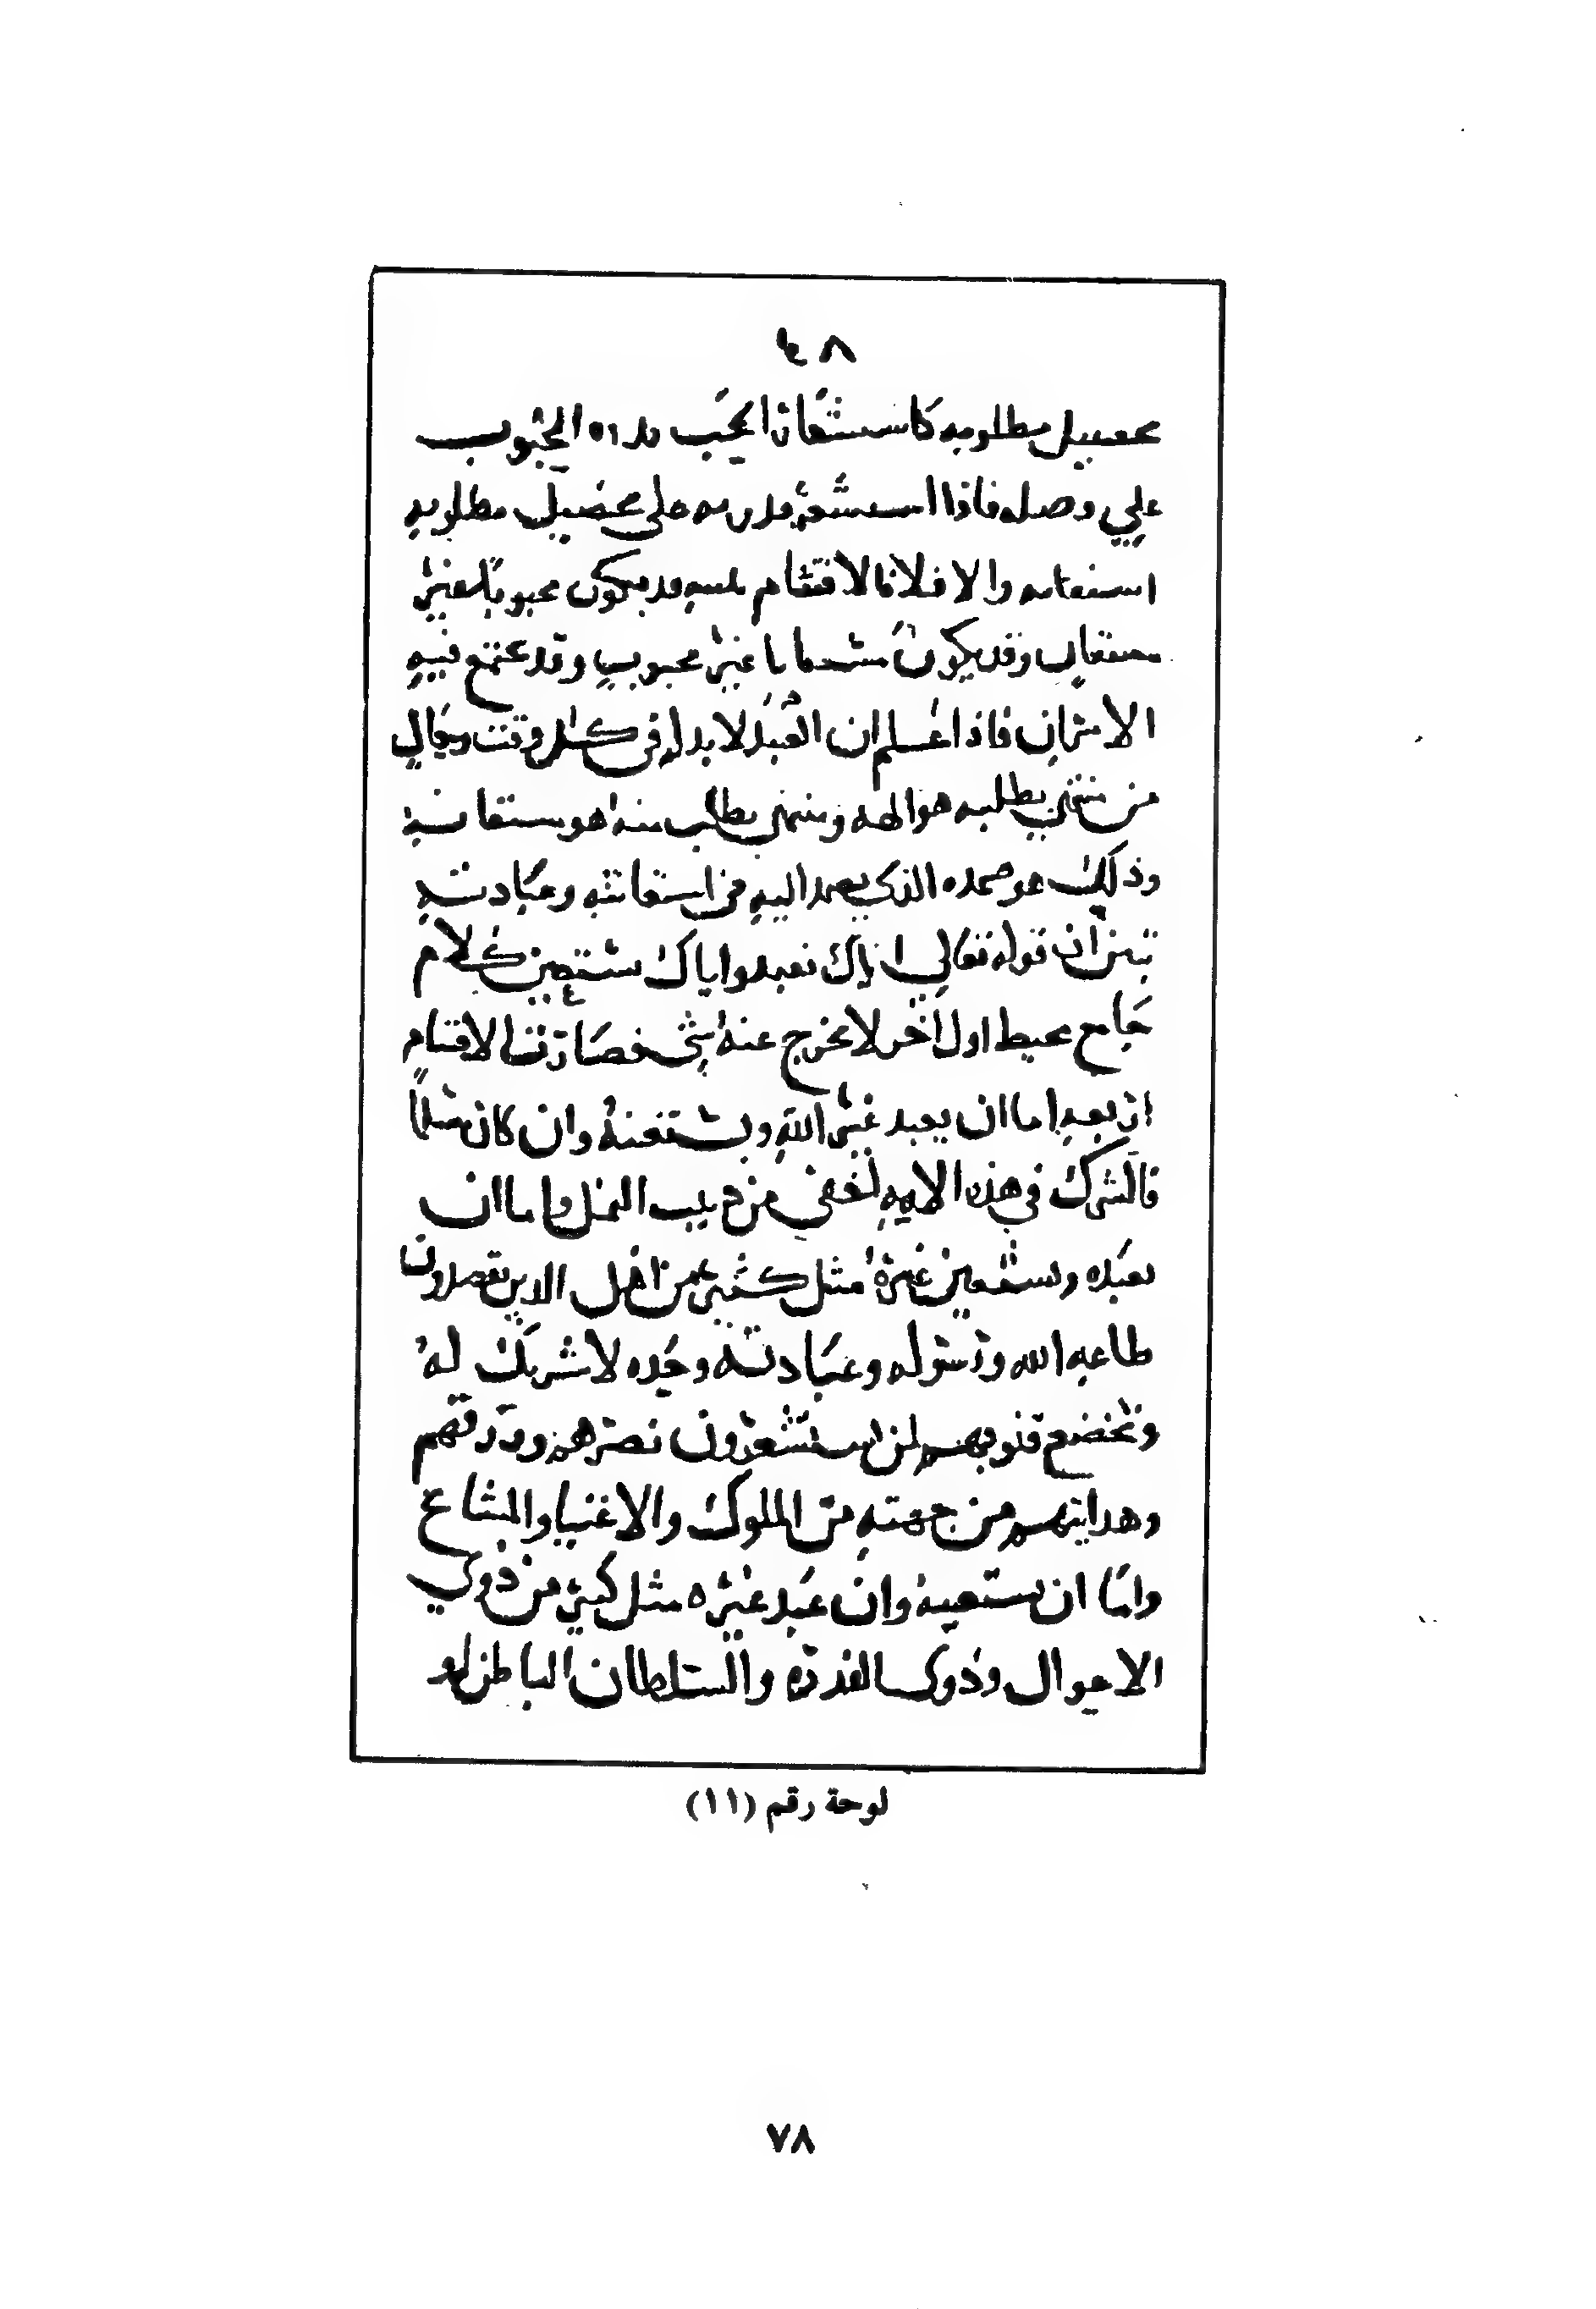 ٤٨
تحصيل مطلوبه كاستشعار المحب قدرة المحبوب
علي وصله فاذا استشعر قدرته على تحصيل مطلوبه
استعانه والا فلا فالاقسام ثلثه قد يكون محبوبا غير
مستعان وقد يكون مستعانا غير محبوب وقد يجتمع فيه
الامران فاذا علم ان العبد لا بد له في كل وقت وحال
من منتهي يطلبه هو الهه ومنتهي يطلب منه هو مستعانه
وذلك هو صمده الذي يصمد اليه في استعانته وعبادته
تبين ان قوله تعالي اياك نعبد واياك نستعين كلام
جامع محيط اول اخر لا يخرج عنه شي فصارت الاقسام
اربعه اما ان يعبد غير الله ويستعينه وان كان مسلما
فالشرك في هذه الامه اخفي من دبيب النمل واما ان
يعبده ويستعين غيره مثل كثير من اهل الدين يقصدون
طاعه الله ورسوله وعبادته وحده لا شريك له
وتخضع قلوبهم لمن يستشعرون نصرهم ورزقهم
وهدايتهم من جهته من الملوك والاغنيا والمشايخ
واما ان يستعينه وان عبد غيره مثل كثير من ذوي
الاحوال وذوي القدره والسلطان الباطن او
لوحة رقم (١١)
٧٨